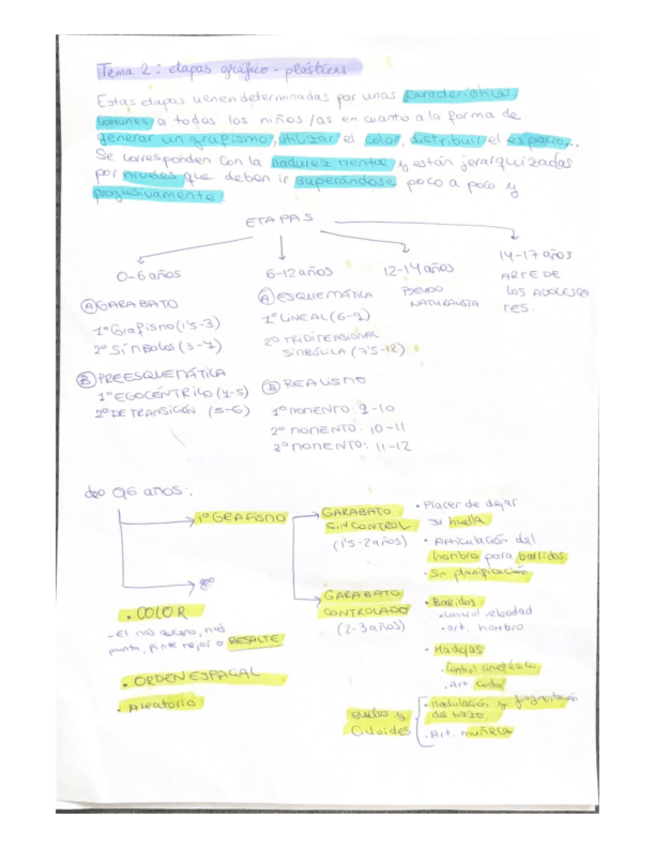 Tema 2: etapas gráfico-plásticas
Estas etapas vienen determinadas por unas características
comunes a todos los niños/as en cuanto a la forma de
generar un grafismo, utilizar el color, distribuir el espacio...
Se corresponden con la madurez mental y están jerarquizadas
por niveles que deben ir superándose poco a poco y
progresivamente.
ETAPAS
0-6 años
6-12 años
12-14 años
14-17 años
PSEUDO
NATURALISTA
ARTE DE
LOS ADOLESCEN
TES.
A GARABATO
1º Grafismo (1'5-3)
2º Símbolos (3-4)
B PREESQUEMÁTICA
1º EGOCÉNTRICO (4-5)
2º DE TRANSICIÓN (5-6)
A ESQUEMÁTICA
1º LINEAL (6-9)
2º TRIDIMENSIONAL
SIMBÓLICA (7'5-12)
B REALISMO
1º MOMENTO: 9-10
2º MOMENTO: 10-11
3º MOMENTO: 11-12
0-6 años:
1º GRAFISMO
GARABATO
SIN CONTROL
(1'5-2 años)
• Placer de dejar
su huella
• Articulación del
hombro para barridos
• Sin planificación
GARABATO
CONTROLADO
(2-3 años)
• Barridos
• Control velocidad
• art. hombro
• Madejas
• Control cinético
• Art. codo
Bucles y
Cicloides
• Modulación y fragmentación
del trazo.
• Art. muñeca
• COLOR
- El más oscuro, más
punta, pinte mejor o RESALTE
• ORDEN ESPACIAL
• Aleatorio